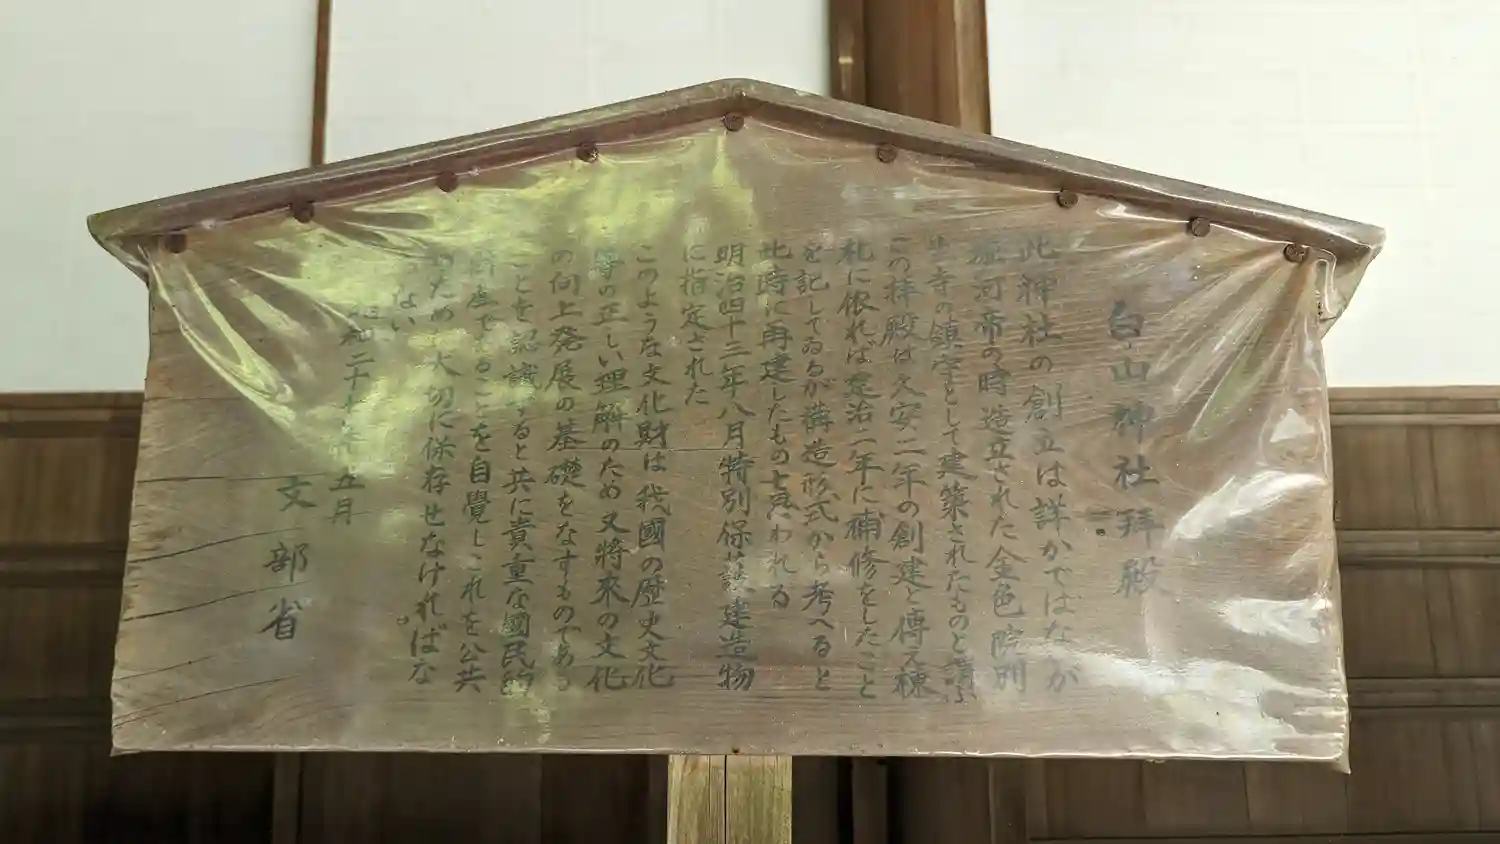 白山神社拝殿
此神社の創立は詳かではないが
堀河帝の時造立された金色院別
寺の鎮守として建築されたものと謂ふ
この拝殿は久安二年の創建と傳え棟
札に依れば建治二年に補修をしたこと
を記してゐるが構造形式から考へると
此時に再建したものと思われる
明治四十三年八月特別保護建造物
に指定された
このような文化財は我國の歴史文化
等の正しい理解のため又將來の文化
の向上発展の基礎をなすものである
ことを認識すると共に貴重な國民的
財産であることを自覺しこれを公共
のため大切に保存せなければな
らない。
昭和二十 年五月
文部省